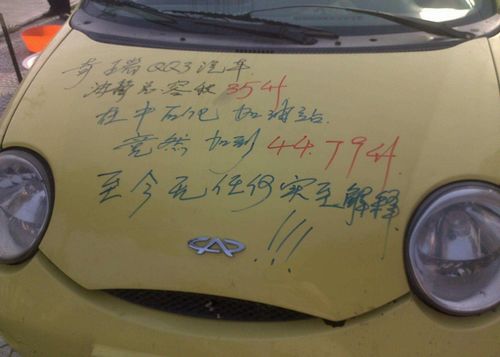 奇瑞QQ3汽车
油箱总容积35升
在中石化加油站
竟然加到44.79升
至今无任何实至解释
!!!